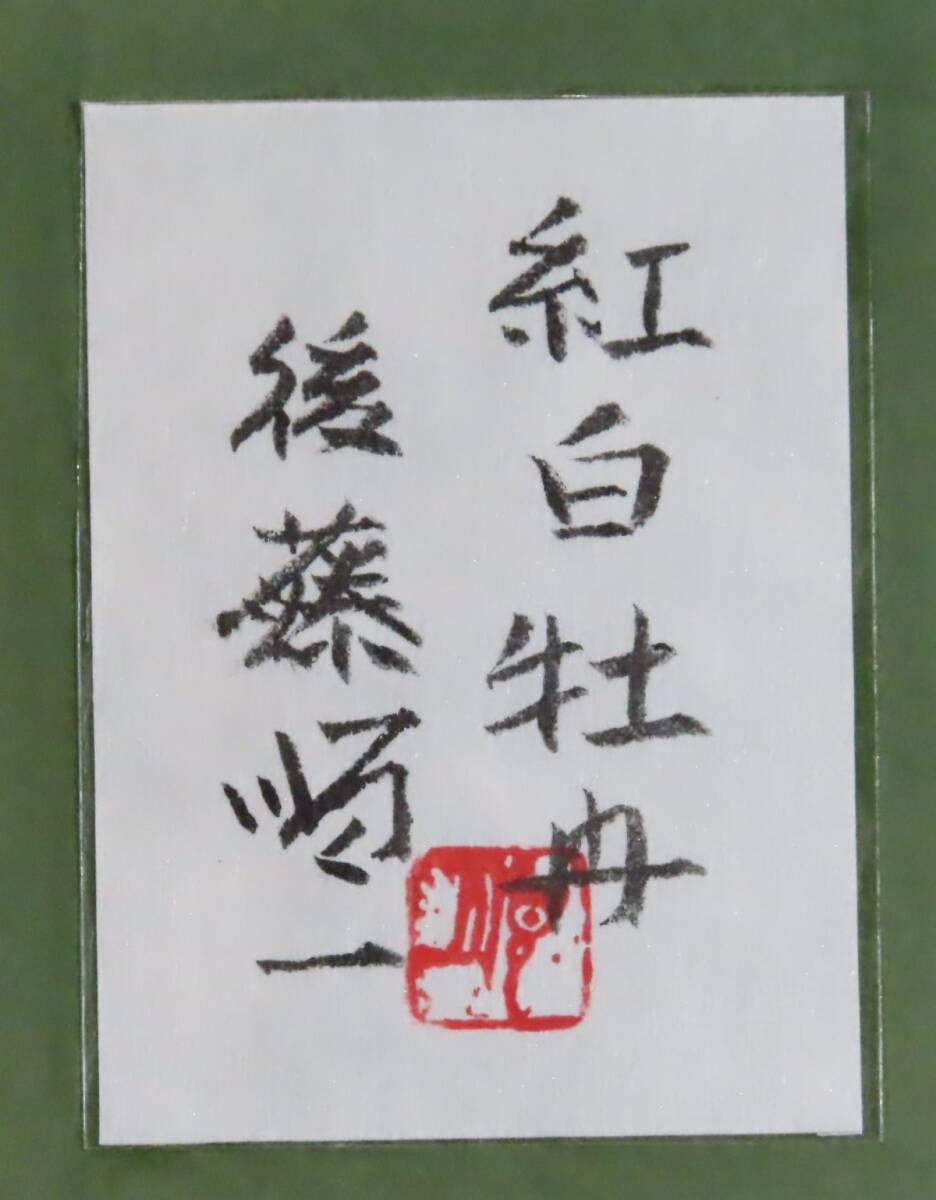 紅白牡丹
後藤順一